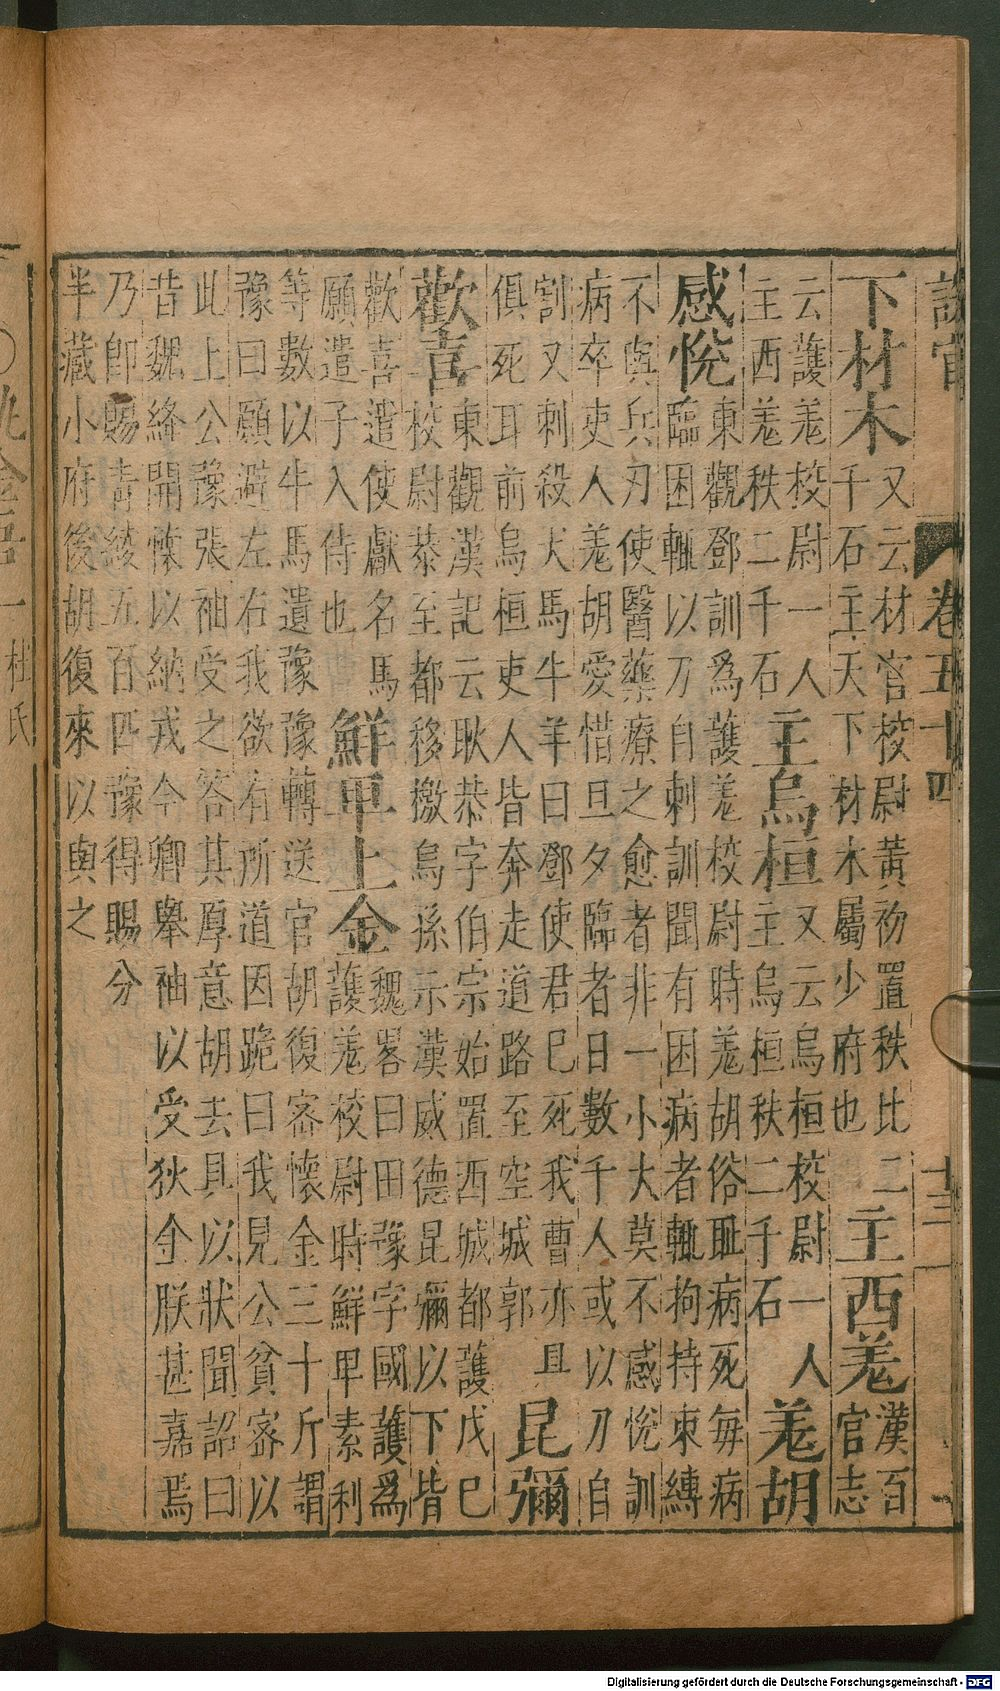 設官 卷五十四 十二
下材木 又云材官校尉黃初置秩比二
千石主天下材木屬少府也 主西羌 漢百
官志
云護羌校尉一人
主西羌秩二千石 主烏桓 又云烏桓校尉一人
主烏桓秩二千石 羌胡
感悅 東觀鄧訓爲護羌校尉時羌胡俗耻病死每病
臨困輒以刀自刺訓聞有困病者輒拘持束縛
不與兵刃使醫藥療之愈者非一小大莫不感悅訓
病卒吏人羌胡愛惜旦夕臨者日數千人或以刀自
割又刺殺犬馬牛羊曰鄧使君巳死我曹亦且
俱死耳前烏桓吏人皆奔走道路至空城郭 昆彌
歡喜 東觀漢記云耿恭字伯宗始置西域都護戊巳
校尉恭至都移檄烏孫示漢威德昆彌以下皆
歡喜遣使獻名馬
願遣子入侍也 鮮卑上金 魏畧曰田豫字國護爲
護羌校尉時鮮卑素利
等數以牛馬遺豫豫轉送官胡復密懷金三十斤謂
豫曰願避左右我欲有所道因跪曰我見公貧密以
此上公豫張袖受之答其厚意胡去具以狀聞詔曰
昔魏絳開懷以納戎今卿舉袖以受狄金朕甚嘉焉
乃卽賜青綾五百匹豫得賜分
半藏小府後胡復來以與之
執金吾一 杜氏
Digitalisierung gefördert durch die Deutsche Forschungsgemeinschaft - DFG